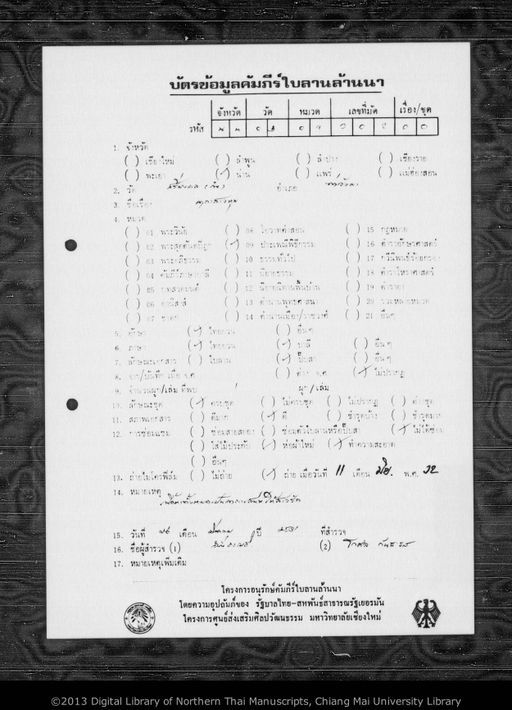 บัตรข้อมูลคัมภีร์ใบลานล้านนา
จังหวัด วัด หมวด เลขที่มัด เรื่อง/ชุด
รหัส
1. จังหวัด
( ) เชียงใหม่ ( ) ลำพูน ( ) ลำปาง ( ) เชียงราย
( ) พะเยา (✓) น่าน ( ) แพร่ ( ) แม่ฮ่องสอน
2. วัด อำเภอ
3. ชื่อเรื่อง
4. หมวด
( ) 01 พระวินัย ( ) 08 โอวาทคำสอน ( ) 15 กฎหมาย
( ) 02 พระสุตตันตปิฎก (✓) 09 ประเพณีพิธีกรรม ( ) 16 ตำราอักษรศาสตร์
( ) 03 พระอภิธรรม ( ) 10 ธรรมทั่วไป ( ) 17
( ) 04 คัมภีร์ภาษาบาลี ( ) 11 นิยายธรรม ( ) 18 ตำราโหราศาสตร์
( ) 05 บทสวดมนต์ ( ) 12 นิยายนิทานพื้นบ้าน ( ) 19 ตำรายา
( ) 06 อานิสงส์ ( ) 13 ตำนานพุทธศาสนา ( ) 20 รวมหลายหมวด
( ) 07 ชาดก ( ) 14 ตำนานเมือง/ราชวงศ์ ( ) 21 อื่นๆ
5. อักษร (✓) ไทยยวน ( ) อื่นๆ
6. ภาษา (✓) ไทยยวน (✓) บาลี ( ) อื่นๆ
7. ลักษณะเอกสาร ( ) ใบลาน (✓) ปั๊บสา ( ) อื่นๆ
8. จาร/บันทึก เมื่อ จ.ศ. ( ) (✓) ไม่ปรากฏ
9. จำนวนผูก/เล่ม ที่พบ 1 ผูก/เล่ม
10. ลักษณะชุด (✓) ครบชุด ( ) ไม่ครบชุด ( ) ไม่ปรากฏ ( )
11. สภาพเอกสาร ( ) ดีมาก (✓) ดี ( ) ชำรุดบ้าง ( ) ชำรุดมาก
12. การซ่อมแซม ( ) ซ่อมสายสยอง ( ) ซ่อมตัวใบลานหรือปั๊บสา (✓) ไม่ได้ซ่อม
( ) ใส่ไม้ประกับ (✓) ห่อผ้าใหม่ (✓) ทำความสะอาด
( ) อื่นๆ
13. ถ่ายไมโครฟิล์ม ( ) ไม่ถ่าย (✓) ถ่าย เมื่อวันที่ 11 เดือน พ.ศ. 32
14. หมายเหตุ
15. วันที่ เดือน ปี ที่สำรวจ
16. ชื่อผู้สำรวจ (1) (2)
17. หมายเหตุเพิ่มเติม
โครงการอนุรักษ์คัมภีร์ใบลานล้านนา
โดยความอุปถัมภ์ของ รัฐบาลไทย-สหพันธ์สาธารณรัฐเยอรมัน
โครงการศูนย์ส่งเสริมศิลปวัฒนธรรม มหาวิทยาลัยเชียงใหม่
©2013 Digital Library of Northern Thai Manuscripts, Chiang Mai University Library